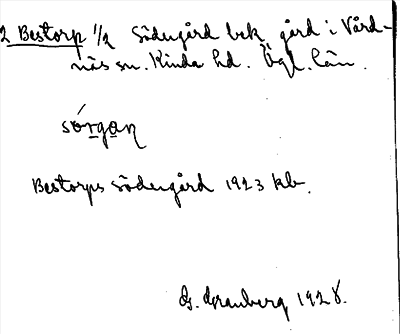 2 Bestorp 1/2 Södergård bek. gård i Vård-
näs sn. Kinda hd. Ögl. län.
sórgan
Bestorps södergård 1923 kb.
G. Granberg 1928.